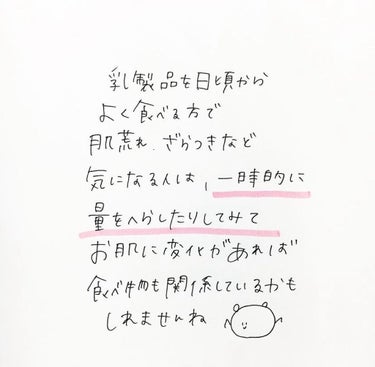 乳製品を日頃から
よく食べる方で
肌荒れ、ざらつきなど
気になる人は、一時的に
量をへらしたりしてみて
お肌に変化があれば
食べ物も関係しているかも
しれませんね